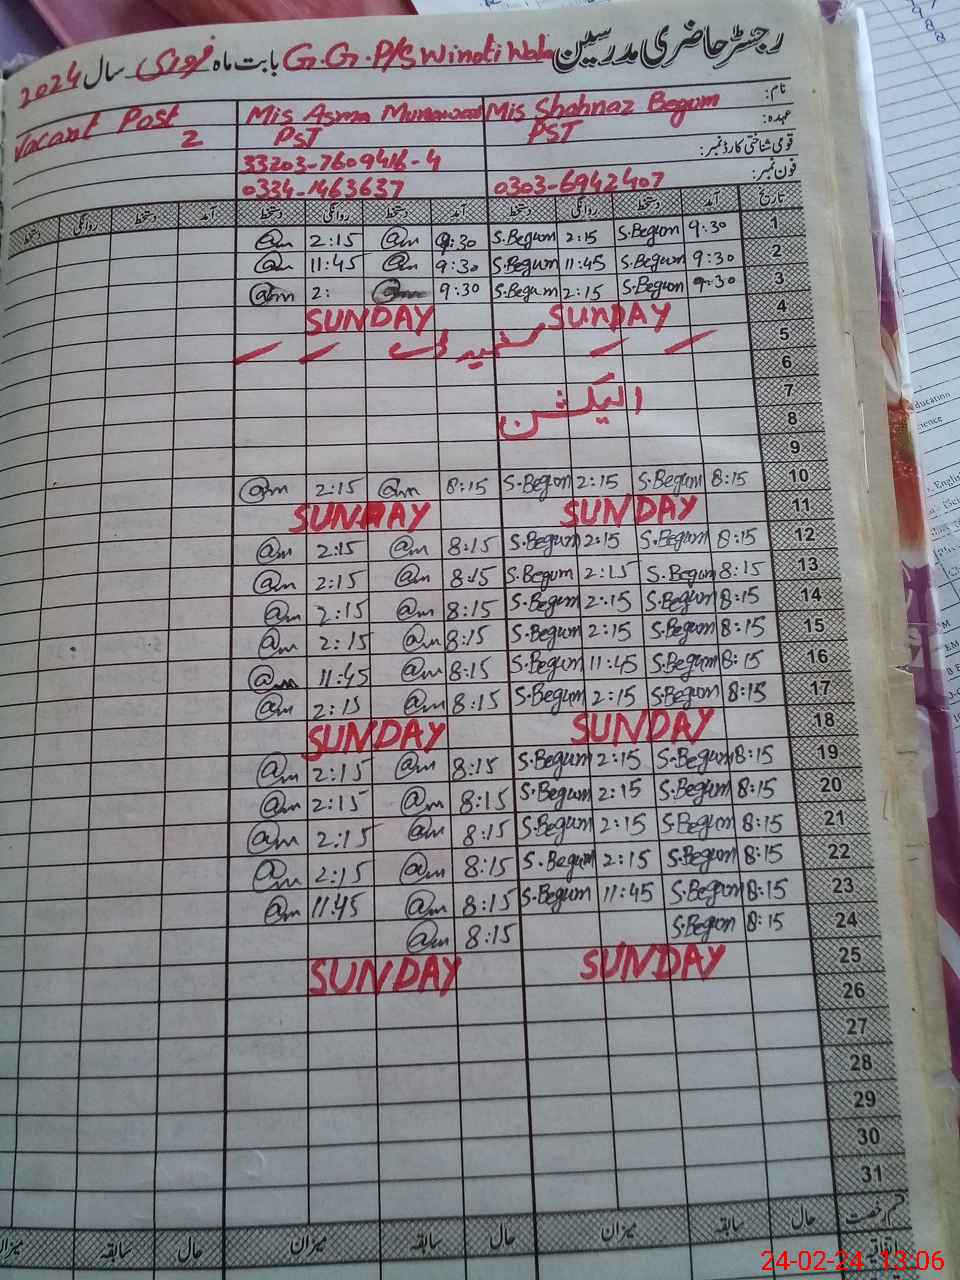 رجسٹر حاضری مدرسین G.G.P/S Winoti Wala بابت ماہ فروری سال 2024
نام: Mis Shahnaz Begum Mis Asma Munawar Vacant Post
عہدہ: PST PST 2
قومی شناختی کارڈ نمبر: 33203-7609416-4
فون نمبر: 0303-6942407 0334-1463637
تاریخ آمد دستخط روانگی دستخط آمد دستخط روانگی دستخط آمد دستخط روانگی دستخط
1 9:30 S.Begum 2:15 S.Begum 9:30 @m 2:15 @m
2 9:30 S.Begum 11:45 S.Begum 9:30 @m 11:45 @m
3 9:30 S.Begum 2:15 S.Begum 9:30 2: @m
4 SUNDAY SUNDAY
5 کشمیر ڈے
6
7 الیکشن
8
9
10 8:15 S.Begum 2:15 S.Begum 8:15 @m 2:15 @m
11 SUNDAY SUNDAY
12 8:15 S.Begum 2:15 S.Begum 8:15 @m 2:15 @m
13 8:15 S.Begum 2:15 S.Begum 8:15 @m 2:15 @m
14 8:15 S.Begum 2:15 S.Begum 8:15 @m 2:15 @m
15 8:15 S.Begum 2:15 S.Begum 8:15 @m 2:15 @m
16 8:15 S.Begum 11:45 S.Begum 8:15 @m 11:45 @m
17 8:15 S.Begum 2:15 S.Begum 8:15 @m 2:15 @m
18 SUNDAY SUNDAY
19 8:15 S.Begum 2:15 S.Begum 8:15 @m 2:15 @m
20 8:15 S.Begum 2:15 S.Begum 8:15 @m 2:15 @m
21 8:15 S.Begum 2:15 S.Begum 8:15 @m 2:15 @m
22 8:15 S.Begum 2:15 S.Begum 8:15 @m 2:15 @m
23 8:15 S.Begum 11:45 S.Begum 8:15 @m 11:45 @m
24 8:15 S.Begum 8:15 @m
25 SUNDAY SUNDAY
26
27
28
29
30
31
قسم رخصت حال سابقہ میزان حال سابقہ میزان حال سابقہ میزان
اتفاقیہ
24-02-24 13:06